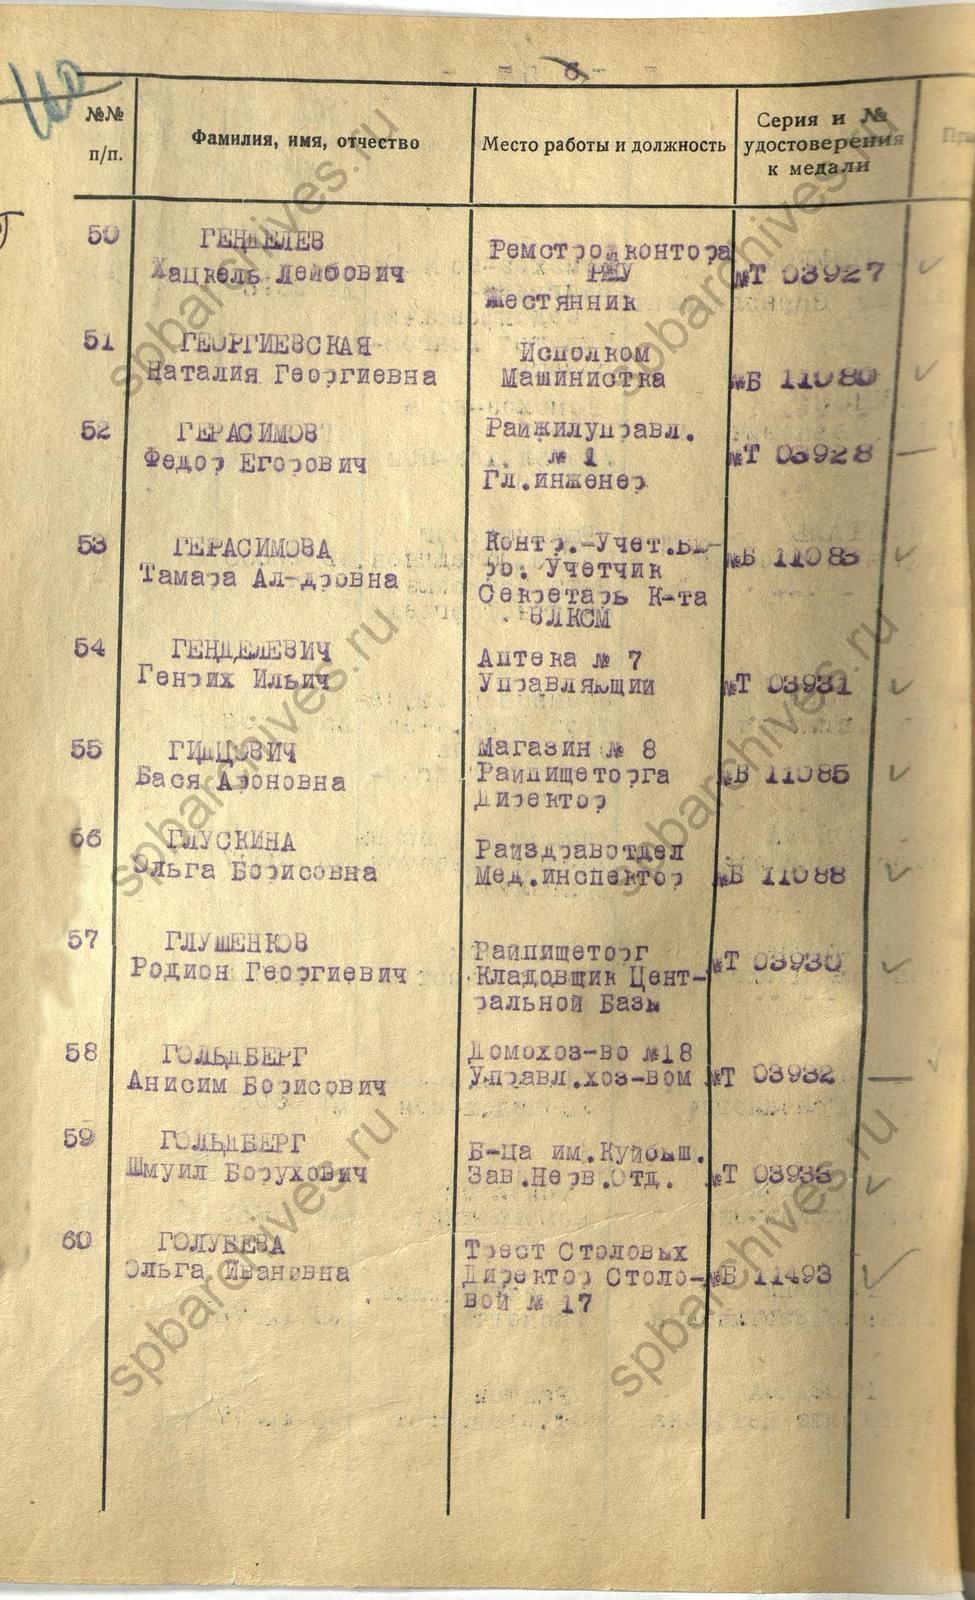 - 6 -
№№ п/п.
Фамилия, имя, отчество
Место работы и должность
Серия и № удостоверения к медали
50 ГЕНДЕЛЕВ Ремстройконтора
Хацкель Лейбович РЖУ №Т 03927
Жестянник
51 ГЕОРГИЕВСКАЯ Исполком
Наталия Георгиевна Машинистка №Б 11080
52 ГЕРАСИМОВ Райжилуправл.
Федор Егорович № 1 №Т 03928
Гл.инженер
53 ГЕРАСИМОВА Контр.-Учет.Бю-
Тамара Ал-дровна ро. Учетчик №Б 11083
Секретарь К-та
ВЛКСМ
54 ГЕНДЕЛЕВИЧ Аптека № 7
Генрих Ильич Управляющий №Т 03931
55 Магазин № 8
Бася Ароновна Райпищеторга №Б 11085
Директор
56 ГЛУСКИНА Райздравотдел
Ольга Борисовна Мед.инспектор №Б 11088
57 ГЛУШЕНКОВ Райпищеторг
Родион Георгиевич Кладовщик Цент- №Т 03930
ральной Базы
58 ГОЛЬДБЕРГ Домохоз-во №18
Анисим Борисович Управл.хоз-вом №Т 03932
59 ГОЛЬДБЕРГ Б-ца им.Куйбыш.
Шмуил Борухович Зав.Нерв.Отд. №Т 03933
60 ГОЛУБЕВА Трест Столовых
Ольга Ивановна Директор Столо- №Б 11493
вой № 17
spbarchives.ru
spbarchives.ru
spbarchives.ru
spbarchives.ru
spbarchives.ru
spbarchives.ru